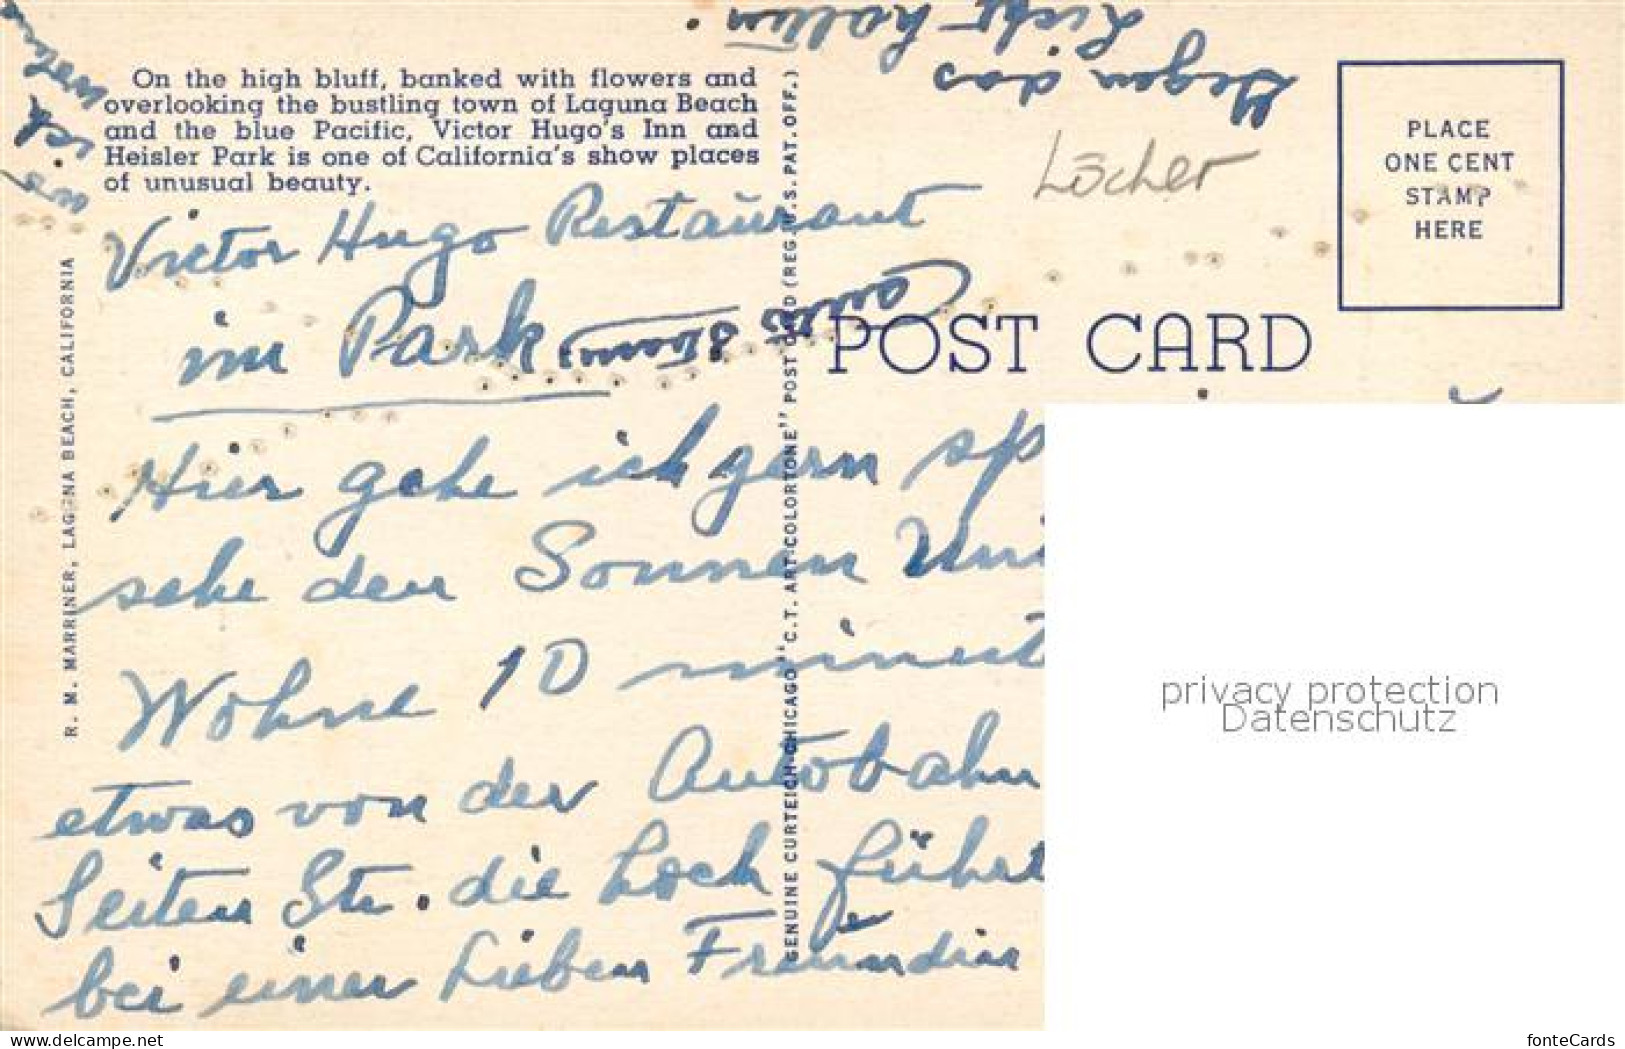 On the high bluff, banked with flowers and
overlooking the bustling town of Laguna Beach
and the blue Pacific, Victor Hugo's Inn and
Heisler Park is one of California's show places
of unusual beauty.
PLACE
ONE CENT
STAMP
HERE
POST CARD
R. M. MARRINER, LAGUNA BEACH, CALIFORNIA
GENUINE CURTEICH-CHICAGO "C.T. ART-COLORTONE" POST CARD (REG. U.S. PAT. OFF.)
Gegen das
Licht halten.
Löcher
wo ich
Victor Hugo Restaurant
im Park
Hier gehe ich gern sp
sehe den Sonnen Un
Wohne 10 minut
etwas von der Autobahn
Seiten Str. die hoch führt
bei einer lieben Freundin
privacy protection
Datenschutz
www.delcampe.net
fonteCards